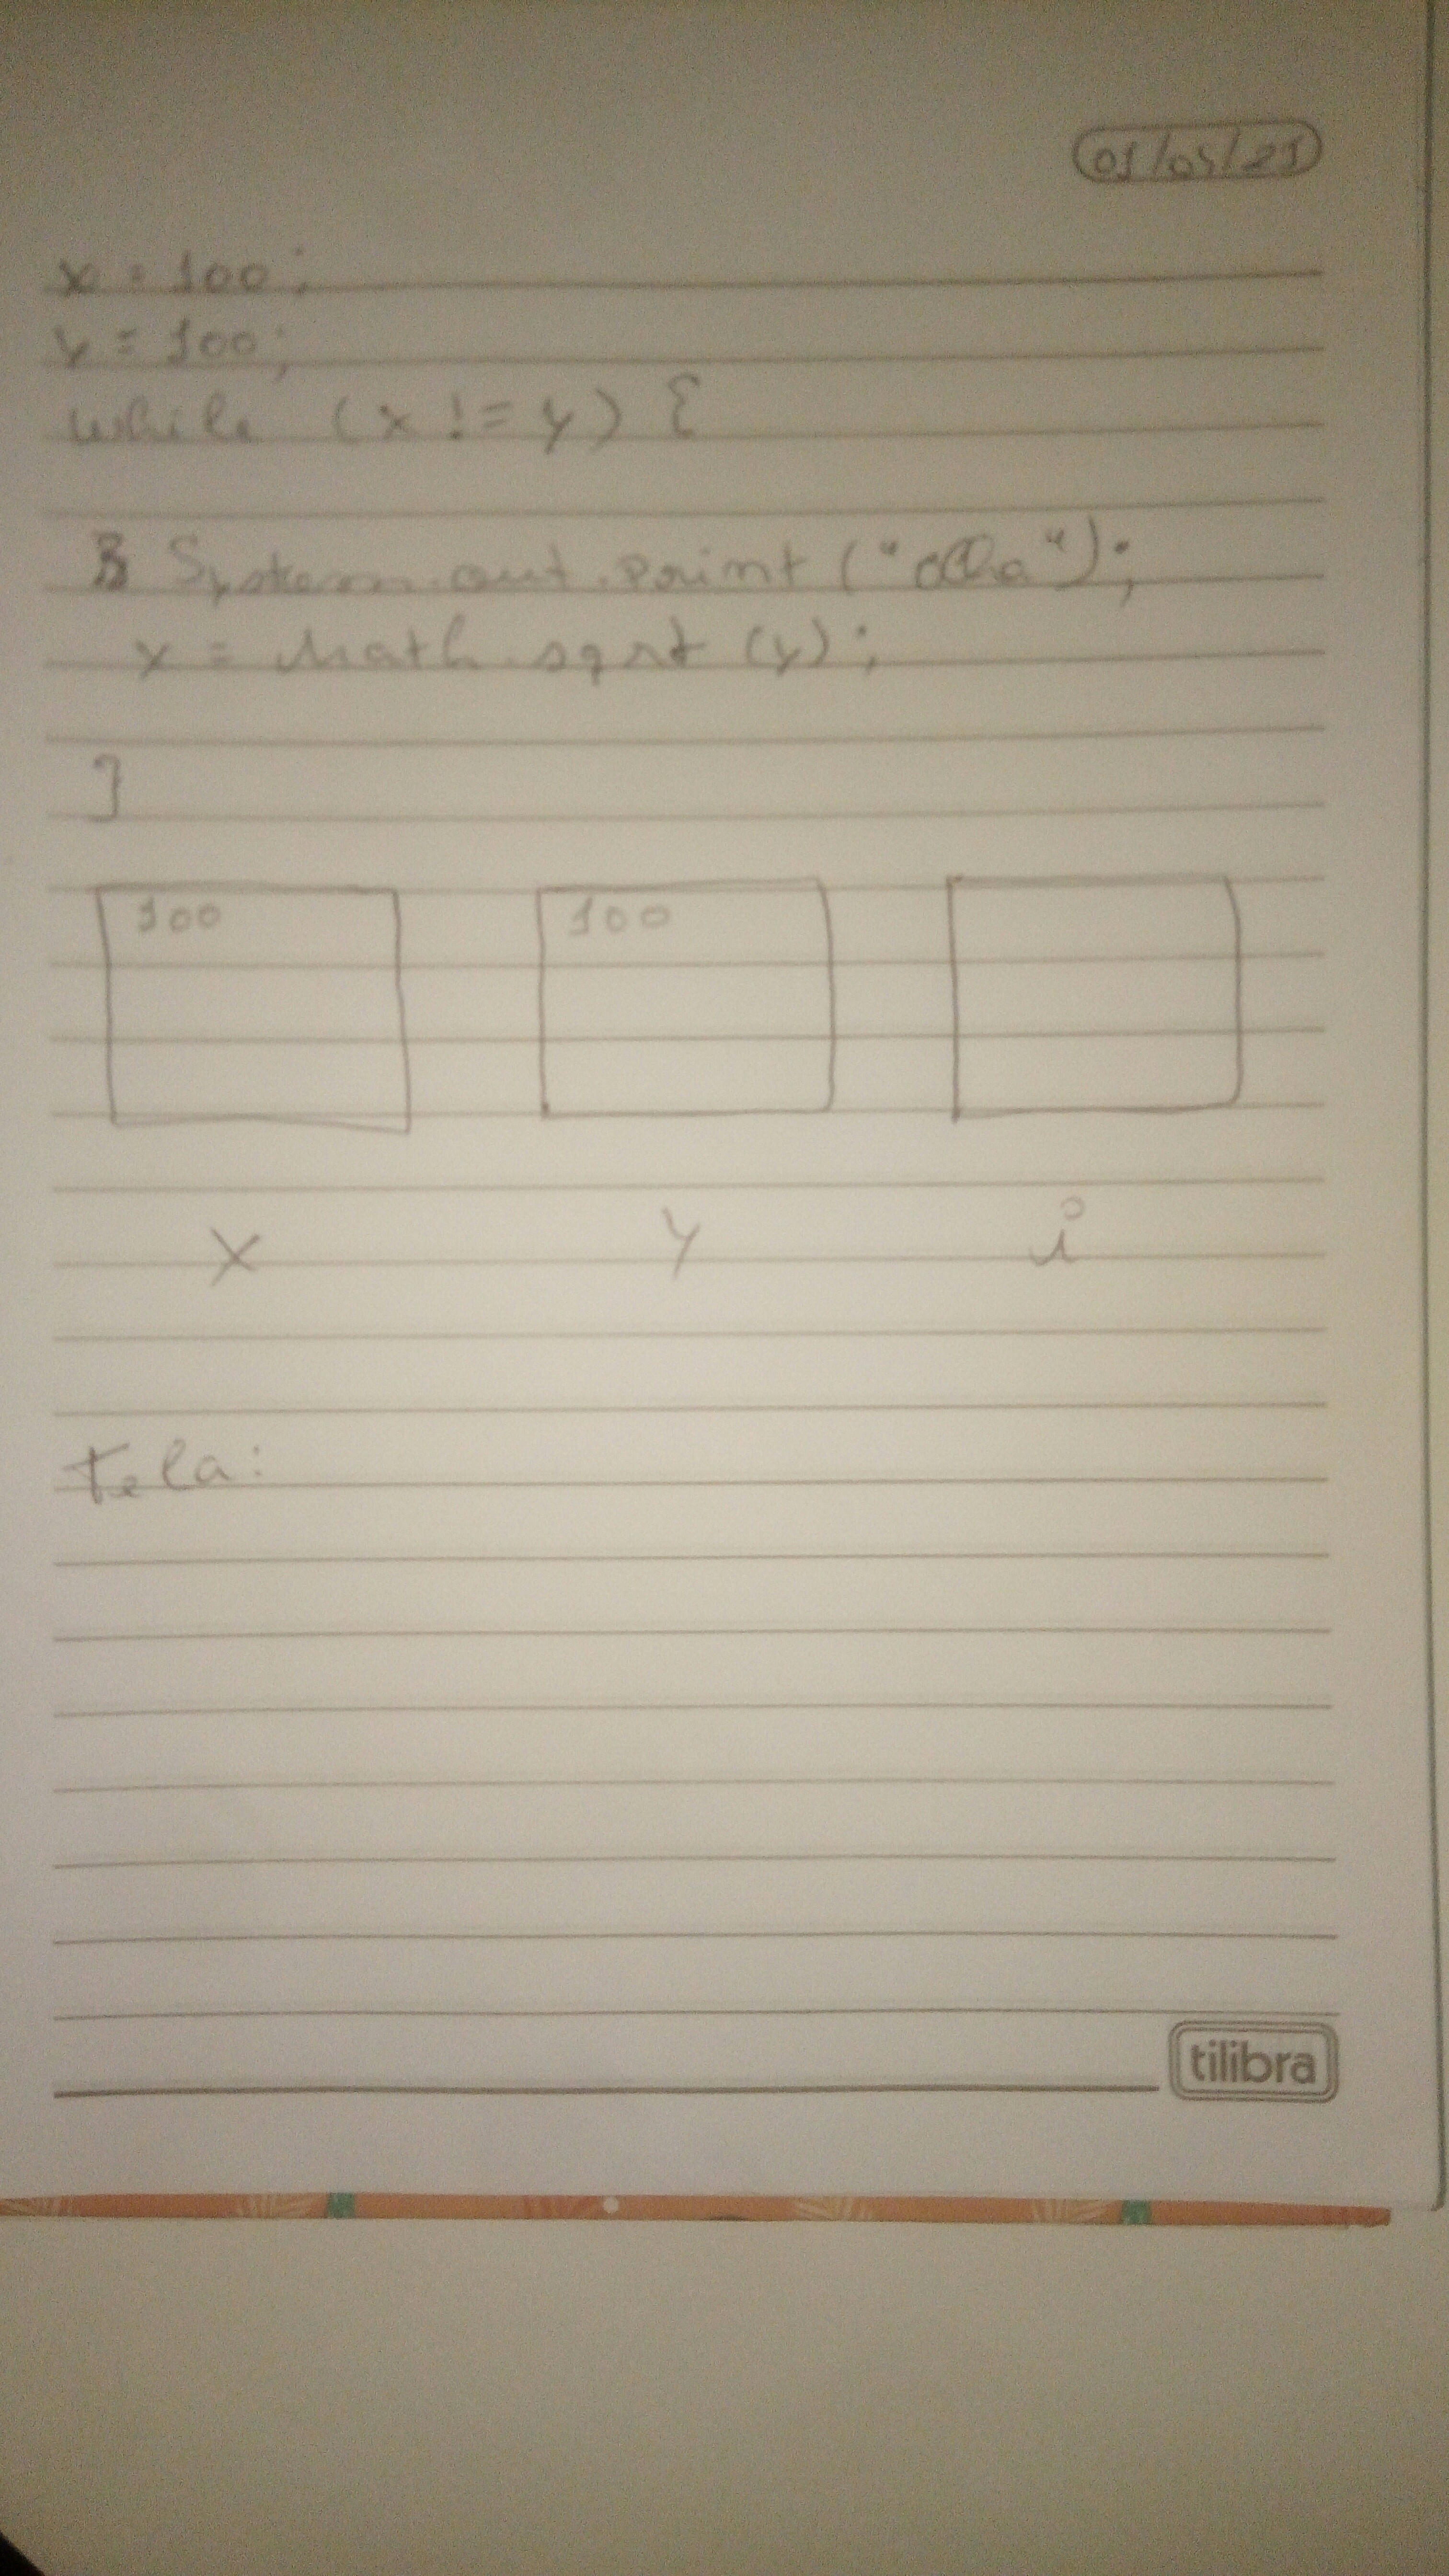 01/05/21
x = 100;
y = 100;
while (x != y) {
System.out.print ("olla");
x = Math sqrt (y);
}
100 100
x y i
Tela:
tilibra